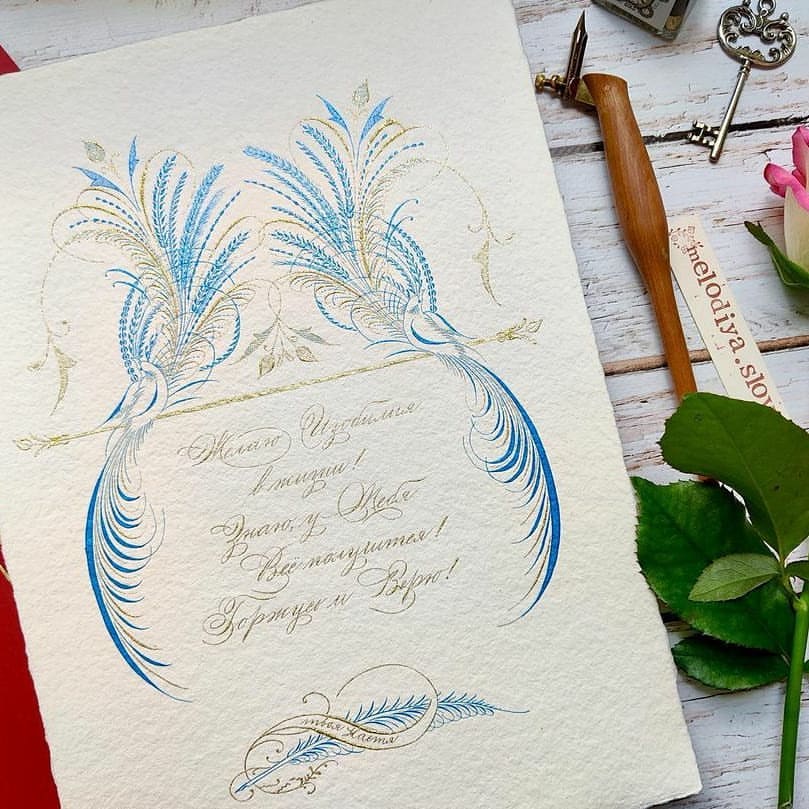 Желаю Изобилия
в жизни!
Знаю, у Тебя
Всё получится!
Горжусь и Верю!
твоя Настя
melodiya.slov